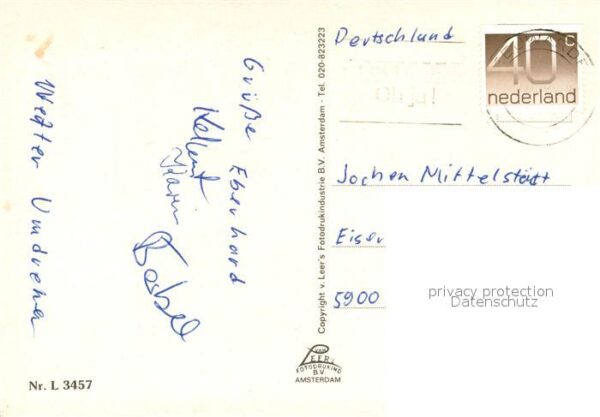 Grüße Eberhard
Helmut
Karin
Bärbel
Nr. L 3457
Copyright v. Leer's Fotodrukindustrie B.V. Amsterdam - Tel. 020-823223
VAN
LEER'S
FOTODRUKIND
B.V.
AMSTERDAM
Deutschland
40c
nederland
Jochen Mittelstädt
Eiser
5900
privacy protection
Datenschutz